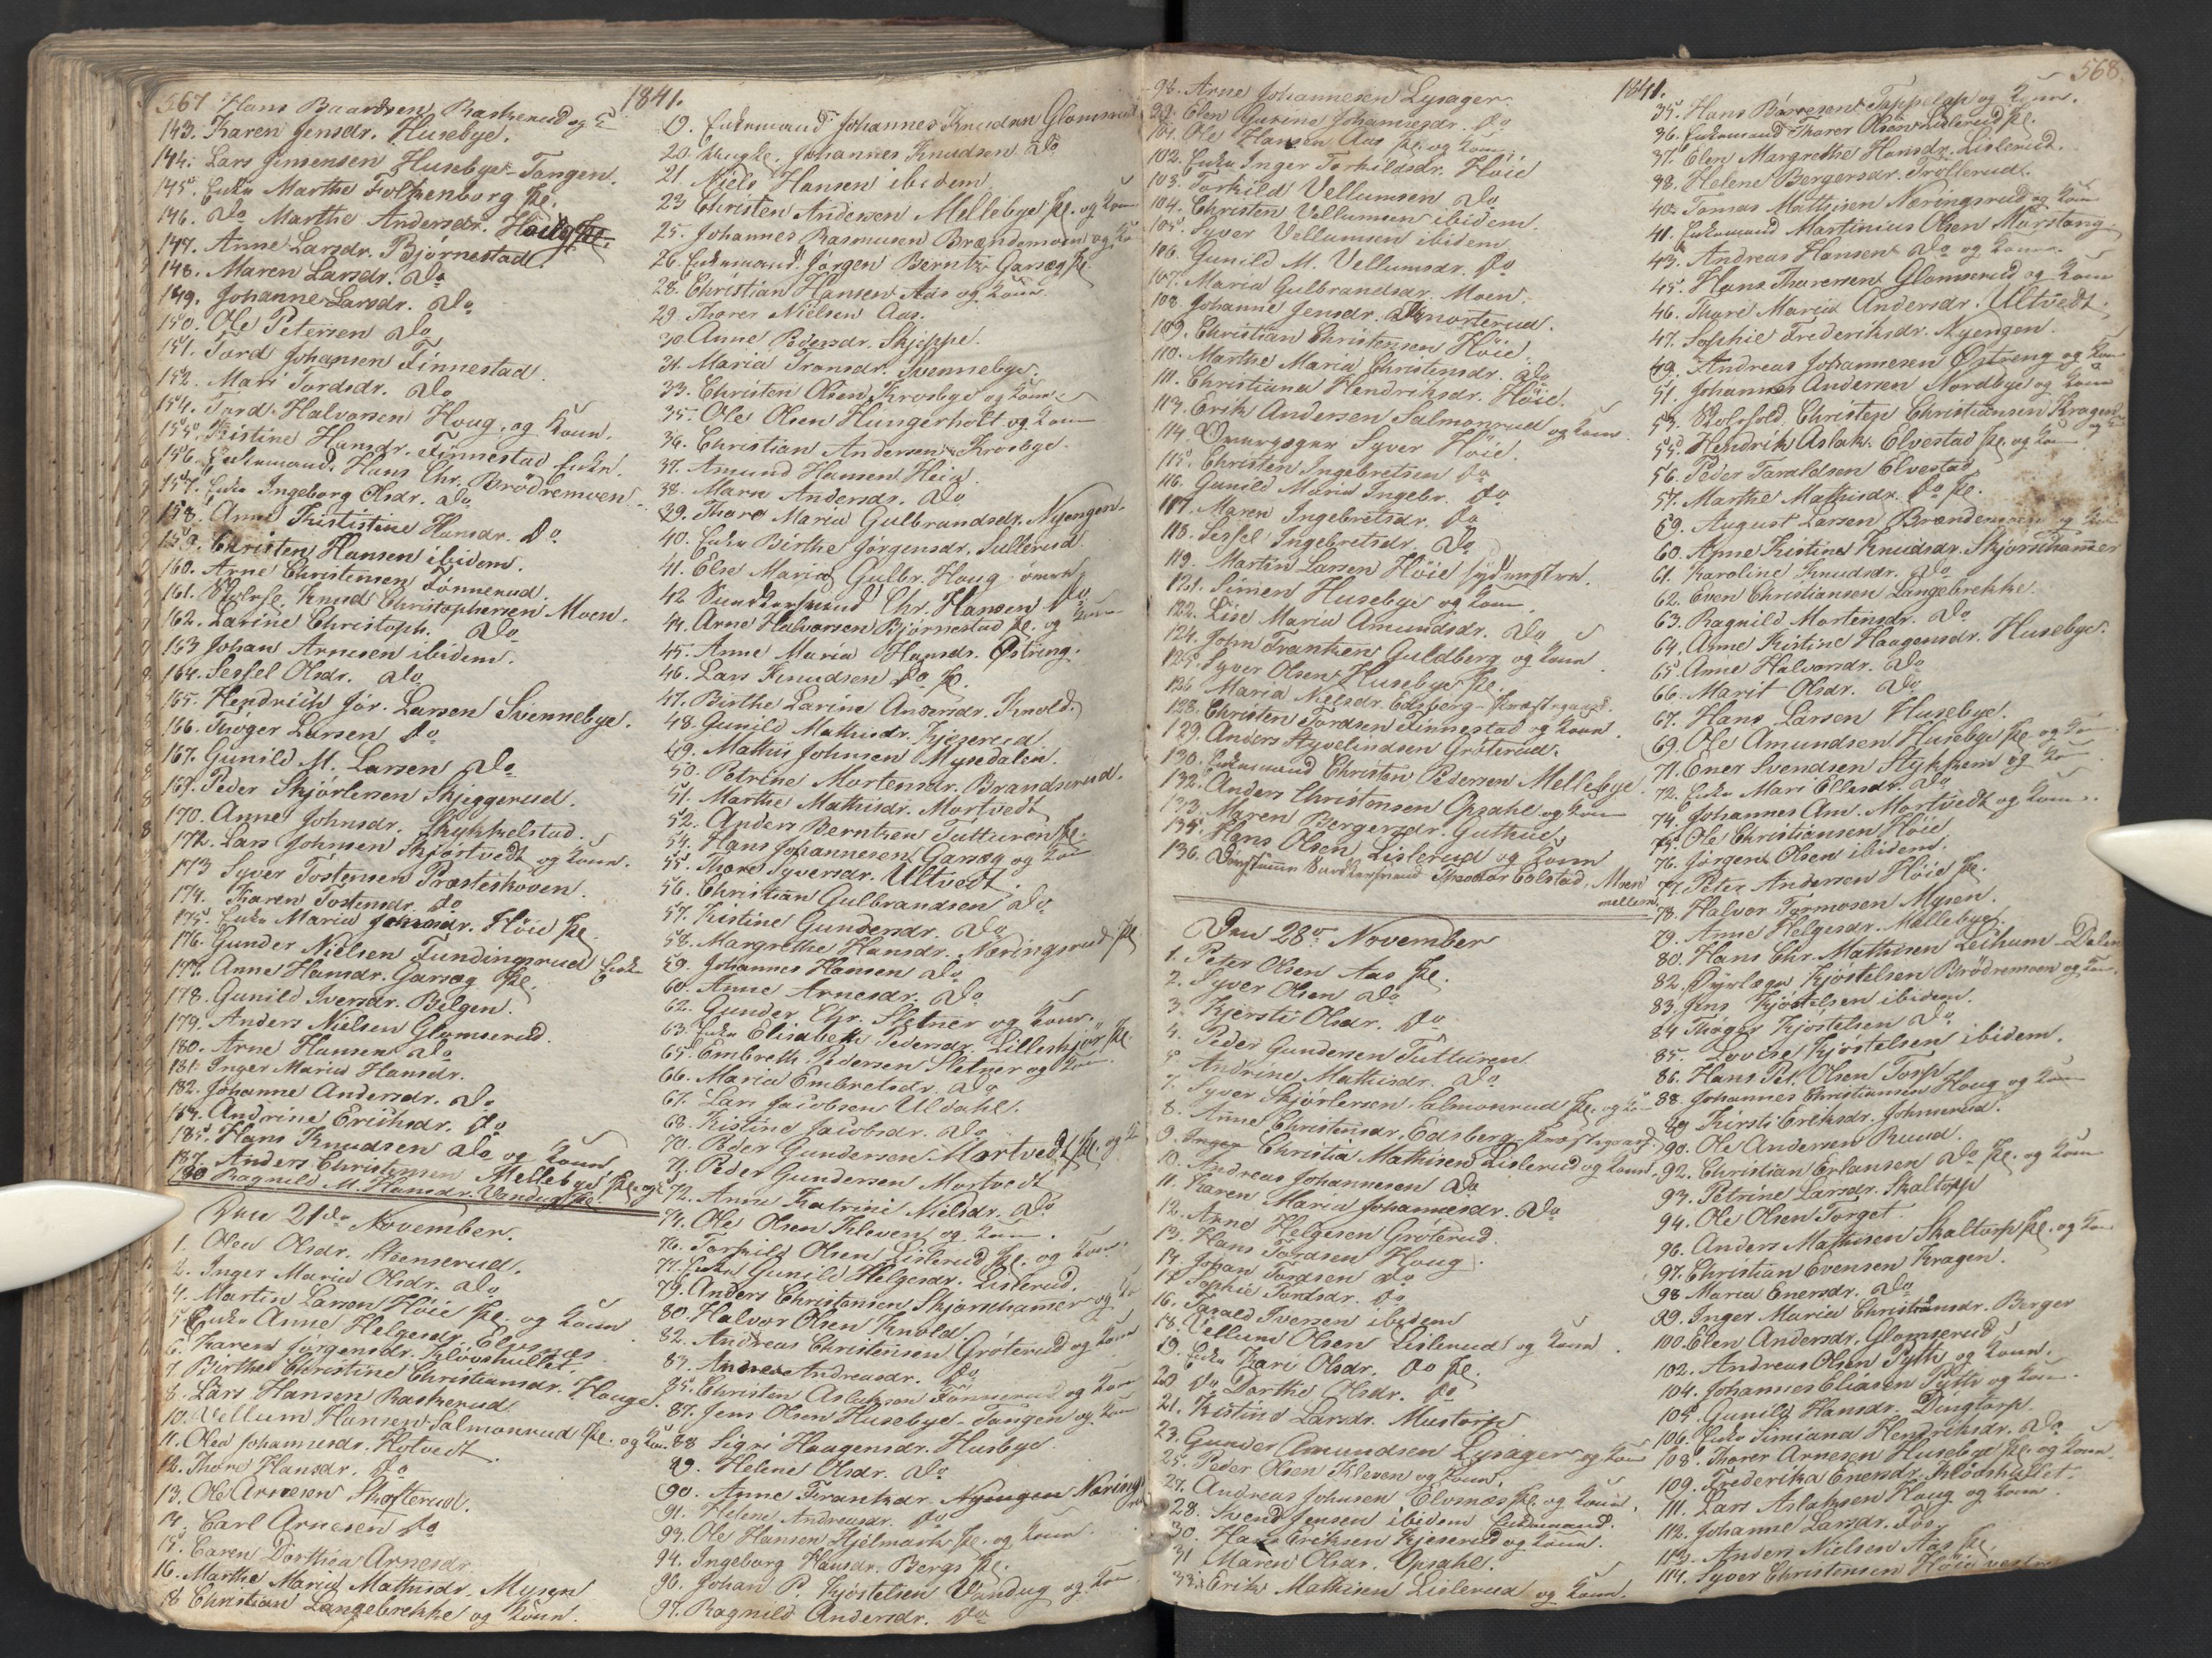 567
1841.
Hans Baardsen, Raskerud og
143. Karen Jensdr. Husebye.
144. Lars Jensensen Husebye-Tangen.
145. Enke Marthe Folkenborg pl.
146. Do Marthe Andersdr.
147. Anne Larsdr. Bjørnestad.
148. Maren Larsdr. Do
149. Johanne Larsdr. Do
150. Ole Petersen Do
151. Tord Johansen Finnestad
152. Mari Tordsdr. Do
154. Tord Halvorsen Houg, og Kone.
155. Kistine Hansdr. Finnestad Enke.
156. Enkemand Hans Chr. Brödremoen
157. Enke Ingeborg Olsdr. Do
158. Anne Kististine Hansdr. Do
159. Christen Hansen ibidem.
160. Arne Christensen Tönnerud.
161. Knud Christophersen Moen.
162. Larine Christoph. Do
163 Johan Arnesen ibidem.
164. Sessel Olsdr. Do
165. Hendrich Jör. Larsen Svennebye.
166. Thöger Larsen Do
167. Gunild M. Larsen Do
169. Peder Skjörlersen Skjeggerud.
170. Anne Johnsdr. Rykkelstad.
172. Lars Johnsen Skjörtvedt og Kone.
173 Syver Töstensen Præsteskoven.
174. Karen Tostensdr. Do
175. Enke Maria Höie pl.
176. Gunder Nielsen Fundingsrud Enke
177. Anne Hansdr. Garseg pl.
178. Gunild Iversdr. Bilgen.
179. Anders Nielsen Glomserud.
180. Arne Hansen Do
181. Inger Maria Hansdr.
182. Johanne Andersdr. Do
184. Andrine Erichsdr. Do
185. Hans Knudsen Do og Kone
187. Anders Christensen Mellebye pl. og
Ragnild M. Hansdr. Vandug pl.
Den 21de November.
1. Olea Olsdr. Steenserud.
2. Inger Maria Olsdr. Do
4. Martin Larsen Höie pl. og Kone
5. Enke Anne Helgesdr. Elvsnæs
6. Karen Jörgensdr. Klöoshullet.
7. Birthe Christine Christiansdr. Houge.
8. Lars Hansen Raskerud
10. Vellum Hansen Salmonrud pl. og Kone.
11. Olea Johannesdr. Hotvedt.
12. Thore Hansdr. Do
13. Ole Arnesen Skofterud.
14. Carl Arnesen Do
15. Caren Dorthea Arnesdr
16. Marthe Maria Mathisdr. Mysen
18 Christian Langebrekke og Kone.
19. Enkemand Johannes Knudsen Glomserud
20. Johannes Knudsen Do
21. Niels Hansen ibidem.
23 Christen Andersen Mellebye pl. og Kone
25. Johannes Rasmusen Brændemoen og Ko
26. Enkemand Jörgen Berntz. Garseg pl.
28. Christian Hansen Aas og Kone.
29. Thorer Nielsen Aas.
30. Anne Pedersdr. Skjeppe.
31. Maria Tronsdr. Svennebye.
33. Christen Olsen Krosbye og Kone.
35. Ole Olsen Hungerholt og Kone
36. Christian Andersen Krosbye.
37. Amund Hansen Heia.
38. Maren Andersdr. Do
39. Thore Maria Gulbrandsdr. Nyengen.
40. Enke Birthe Jörgensdr. Sullerud
41. Else Maria Gulbr. Houg
42 Chr. Hansen Do
44. Arne Halvorsen Bjørnestad pl. og Kone
45. Anne Maria Hansdr. Østring.
46. Lars Knudsen Do pl.
47. Birthe Larine Andersdr. Knold.
48. Gunild Mathisdr. Kjeserud
49. Mathis Johnsen Mysedalen.
50. Petrine Mortensdr. Brandsrud.
51. Marthe Mathisdr. Mortvedt
52. Anders Berntsen Tutturen pl.
54. Hans Johannesen Garseg og Kone
55. Thore Syversdr. Ultvedt.
56. Christian Gulbrandsen Do.
57. Kistine Gundersdr. Do
58. Margrethe Hansdr. Næringsrud pl
59. Johannes Hansen Do
60. Anne Arnesdr. Do
62. Gunder Chr. Sletner og Kone.
63. Enke Elisabeth Pedersdr. Lilleskjör pl
65. Embreth Pedersen Sletner og Kone
66. Maria Embretsdr. Do
67. Lars Jacobsen Uldahl.
68. Kistine Jacobsdr. Do
70. Peder Gundersen Mortvedt pl. og K
71. Peder Gundersen Mortvedt
72. Anne Katrine Nielsdr. Do
74. Ole Olsen Kleven og Kone.
76. Torkild Olsen Lislerud pl. og Kone.
77. Enke Gunild Helgesdr. Lislerud.
79. Anders Christensen Skjørshamer og Ko
80. Halvor Olsen Knold.
82. Andreas Christensen Gröterud og Kone
83. Andrea Andreasdr. Do
85. Christen Aslaksen Tönnerud og Kone
87. Jens Olsen Husebye-Tangen og Kone
88 Sigri Haagensdr. Husbye
89. Helene Olsdr. Do
90. Anne Frantzdr. Nyengen Næring
91. Helene Andreasdr. Do
93. Ole Hansen Hjelmark pl. og Kone.
94. Ingeborg Hansdr. Bergs pl.
96. Johan P. Kjöstelsen Vandug og Kone.
97. Ragnild Andersdr. Do
568.
1841.
98. Arne Johannesen Lysager.
99. Elen Gurine Johannesdr. Do
101. Ole Hansen Aas pl. og Kone.
102. Enke Inger Torkildsdr. Höie
103. Torkild Vellumsen Do
104. Christen Vellumsen ibidem.
105. Syver Vellumsen ibidem
106. Gunild M. Vellumsdr. Do
107. Maria Gulbrandsdr. Moen.
108. Johanne Jensdr.
109. Christian Christensen Höie
110. Marthe Maria Christensdr. Do
111. Christiana Hendriksdr. Höie.
113. Erik Andersen Salmonrud og Kone.
114. Syver Höie.
115. Christen Ingebretsen Do
116. Gunild Maria Ingebr. Do
117. Maren Ingebretsdr. Do
118. Sessel Ingebretsdr. Do
119. Martin Larsen Höie sydvestre.
121. Simen Husebye og Kone.
122. Lise Maria Amundsdr. Do
124. John Frantzen Guldberg og Kone
125. Syver Olsen Husebye pl.
126 Maria Nielsdr. Edsberg-Præstegaard.
128. Christen Tordsen Finnestad og Kone.
129. Anders Styvelindsen Gröterud.
130. Enkemand Christen Pedersen Mellebye.
132. Anders Christensen Opsahl og Kone
133. Maren Bergersdr. Guthus.
135. Hans Olsen Lislerud og Kone
136. Theodor Colstad, Moen
mellem.
Den 28de November
1. Peter Olsen Aas pl.
2. Syver Olsen Do
3. Kjersti Olsdr. Do
4. Peder Gundersen Tutturen
5. Andrine Mathisdr. Do
7. Syver Skjörlersen Salmonrud pl. og Ko
8. Anne Christensdr. Edsberg Præstegaard.
9. Christia Mathisen Lislerud og Kone.
10. Andreas Johannesen Do
11. Karen Maria Johannesdr. Do
12. Arne Helgesen Gröterud
13. Hans Tordsen Houg.
14. Johan Tordsen Do
15. Sophie Tordsdr. Do
16. Tarald Iversen ibidem
18. Vellum Olsen Lislerud og Kone
19. Enke Kari Olsdr. Do pl.
20 Do Dorthe Olsdr. Do
21. Kistine Larsdr. Mustorp
23. Gunder Amundsen Lysager og Kone
25. Peder Olsen Kleven og Kone.
27. Andreas Johnsen Elvsnæs pl. og Kone.
28. Svend Jensen ibidem Enkemand.
30. Hans Eriksen Kjeserud og Kone.
31 Maren Olsdr. Opsahl.
33. Erik Mathisen Lislerud og Kone.
35. Hans Börresen Toppelap og Kone.
36. Enkemand Thorer Olsen Lislerud pl.
37. Elen Margrethe Hansdr. Lislerud.
38. Helene Bergersdr. Trollerud.
40. Tomas Mathisen Næringsrud og Kone
41. Enkemand Martinius Olsen Mörstang.
43. Andreas Hansen Do og Kone.
45. Hans Thoresen Glomserud og Kone
46. Thore Maria Andersdr. Ultvedt.
47. Sophie Frederiksdr. Nyengen.
49. Andreas Johannesen Østreng og Kone
51. Johannes Andersen Nordbye og Kone
53. Christen Christiansen Kragen
55. Hendrik Aslak. Elvestad pl. og Kone
56. Peder Taraldsen Elvestad
57. Marthe Mathisdr. Do pl.
59. August Larsen Brændemoen og Kone
60. Anne Kistine Knudsdr. Skjørshamer
61. Karoline Knudsdr. Do
62. Even Christiansen Langebrekke.
63. Ragnild Mortensdr. Do
64. Anne Kistine Haagensdr. Husebye.
65. Anne Halvorsdr. Do
66. Marit Olsdr. Do
67. Hans Larsen Husebye.
69. Ole Amundsen Husebye pl. og Kone.
71. Ener Svendsen Slykkem og Kone
72. Enke Mari Ellesdr. Do
74. Johannes Am. Mortvedt og Kone.
75. Ole Christiansen Höie
76. Jörgen Olsen ibidem.
77. Peter Andersen Höie pl.
78. Halvor Tormosen Mysen.
79. Anne Helgesdr. Mellebye.
80. Hans Chr. Mathisen Lechum-Dalen
82. Dyrlæge Kjöstelsen Brödremoen og Kone.
83. Jens Kjöstelsen ibidem.
84 Thöger Kjöstelsen Do
85. Lovise Kjöstelsen ibidem.
86. Hans Pet. Olsen Torp
88. Johannes Christiansen Houg og Kone
89 Kirsti Eriksdr. Johnsrud.
90. Ole Andersen Ruud.
92. Christian Erlansen Do pl. og Kone
93. Petrine Larsdr. Skaltorp
94. Ole Olsen Torget.
96. Anders Mathisen Skaltorp pl. og Kone
97. Christian Evensen Kragen.
98 Maria Enersdr. Do
99. Inger Maria Christiansdr. Berger
100. Elen Andersdr. Glomserud
102. Andreas Olsen Pytti og Kone.
104. Johannes Eliasen Pytti og Kone.
105. Gunild Hansdr. Dingtorp.
106. Enke Simiana Hendriksdr. Do
108. Thorer Arnesen Husebye pl. og Kone.
109. Frederika Enersdr. Klöoshullet.
111. Lars Aslaksen Houg og Kone.
112. Johanne Larsdr. Fos.
113. Anders Nielsen Aas pl.
114. Syver Christensen Höie vestre